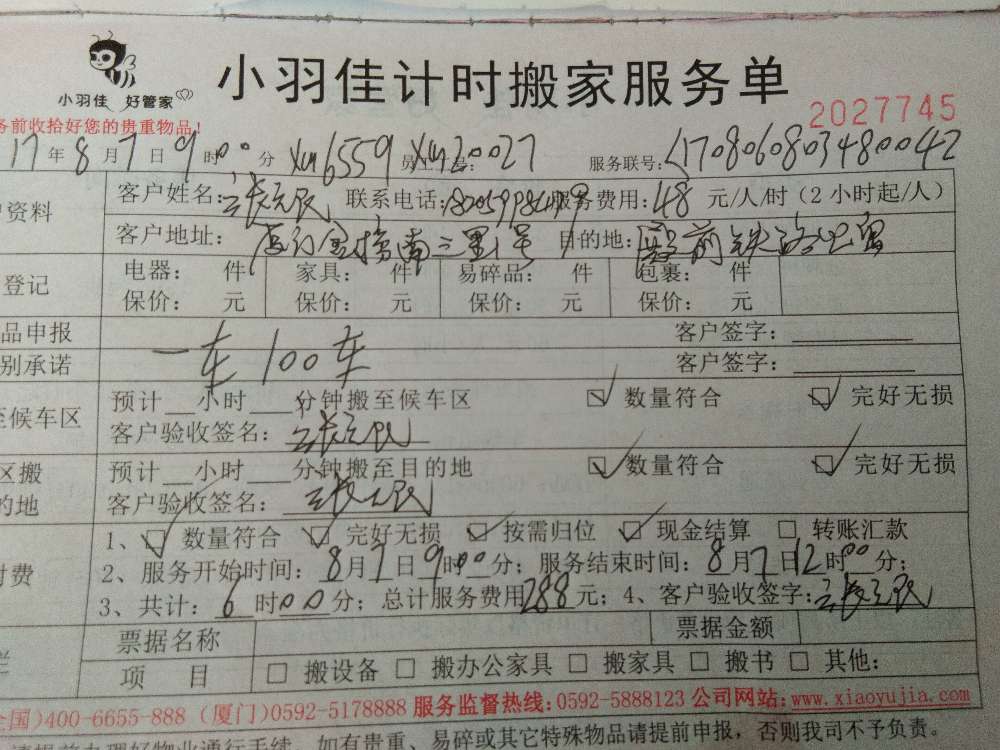 小羽佳 好管家
小羽佳计时搬家服务单
2027745
务前收拾好您的贵重物品!
17年8月7日9时00分 XM6559 员工 号: XM20027 服务联号:
资料 客户姓名: 联系电话: 服务费用:48元/人/时(2小时起/人)
客户地址: 目的地:殿前
登记 电器: 件 家具: 件 易碎品: 件 包裹: 件
保价: 元 保价: 元 保价: 元 保价: 元
品申报 客户签字:
别承诺 一车100车 客户签字:
至候车区 预计__小时___分钟搬至候车区 数量符合 完好无损
客户验收签名:
区搬 预计__小时___分钟搬至目的地 数量符合 完好无损
的地 客户验收签名:
1、 数量符合 完好无损 按需归位 现金结算 转账汇款
付费 2、服务开始时间:8月7日9时00分;服务结束时间:8月7日12时00分;
3、共计:6时00分;总计服务费用288元;4、客户验收签字:
票据名称 票据金额
项 目 搬设备 搬办公家具 搬家具 搬书 其他:
全国)400-6655-888 (厦门)0592-5178888 服务监督热线:0592-5888123 公司网站:www.xiaoyujia.com
请提前办理好物业通行手续,如有贵重、易碎或其它特殊物品请提前申报,否则我司不予负责。